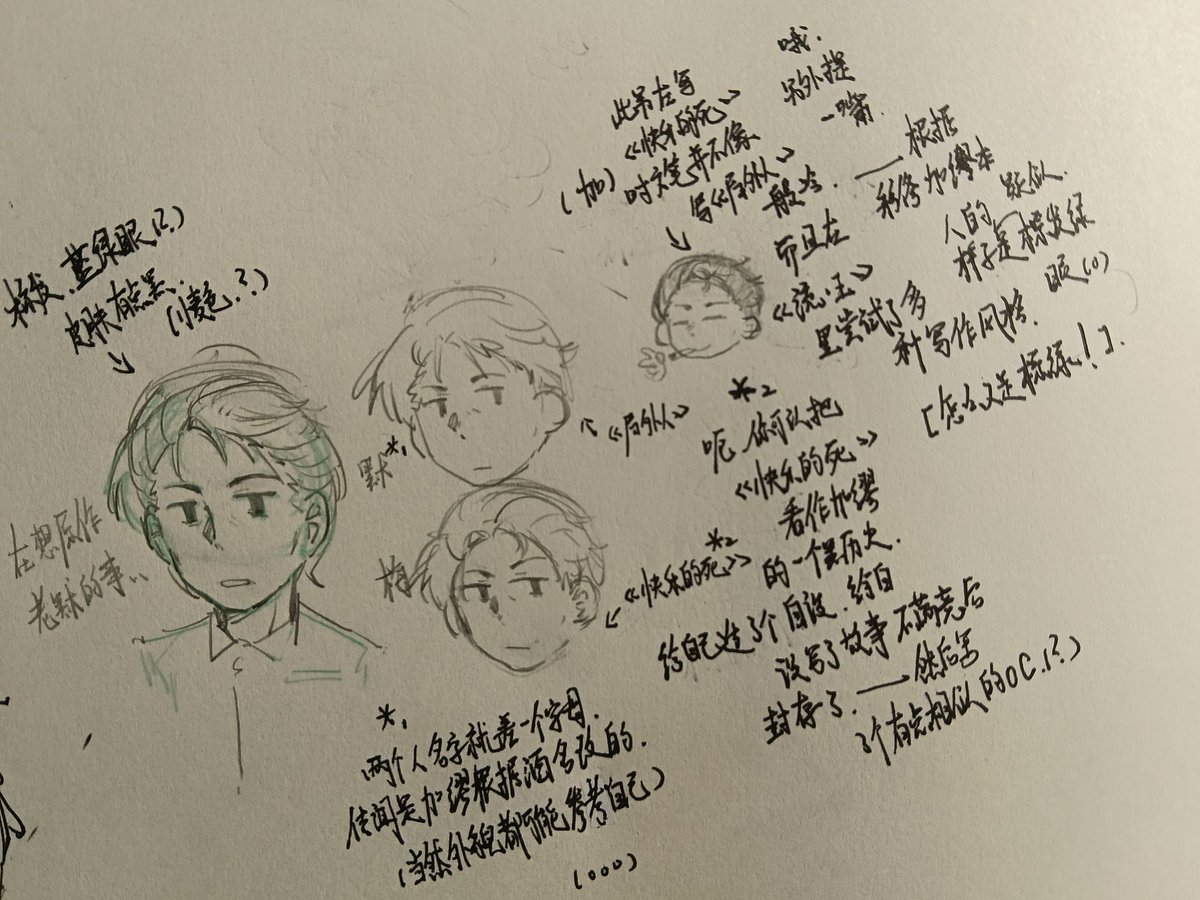 棕发、蓝绿眼(?)
皮肤有点黑、
(小麦色.?)
在想原作
老默的事…
默*1
梅
《局外人》
《快乐的死》*2
此吊在写
《快乐的死》
(加)时文笔并不像
写《局外人》
般冷.
而且在
《流亡与王国》
里尝试了多
种写作风格.
哦.
另外提
一嘴.
——根据
彩像加缪本
人的
样子是棕发绿
眼(。)
[怎么又是棕绿!].
*2
呃,你可以把
《快乐的死》
看作加缪
的一个黑历史.
给自己造了个自设.给自
设写了故事不满意后
封存了.——然后写
了个有点相似的OC.(?)
*1
(两个人名字就差一个字母.
传闻是加缪根据酒名改的.
(当然外貌都可能参考自己)
(。。。)